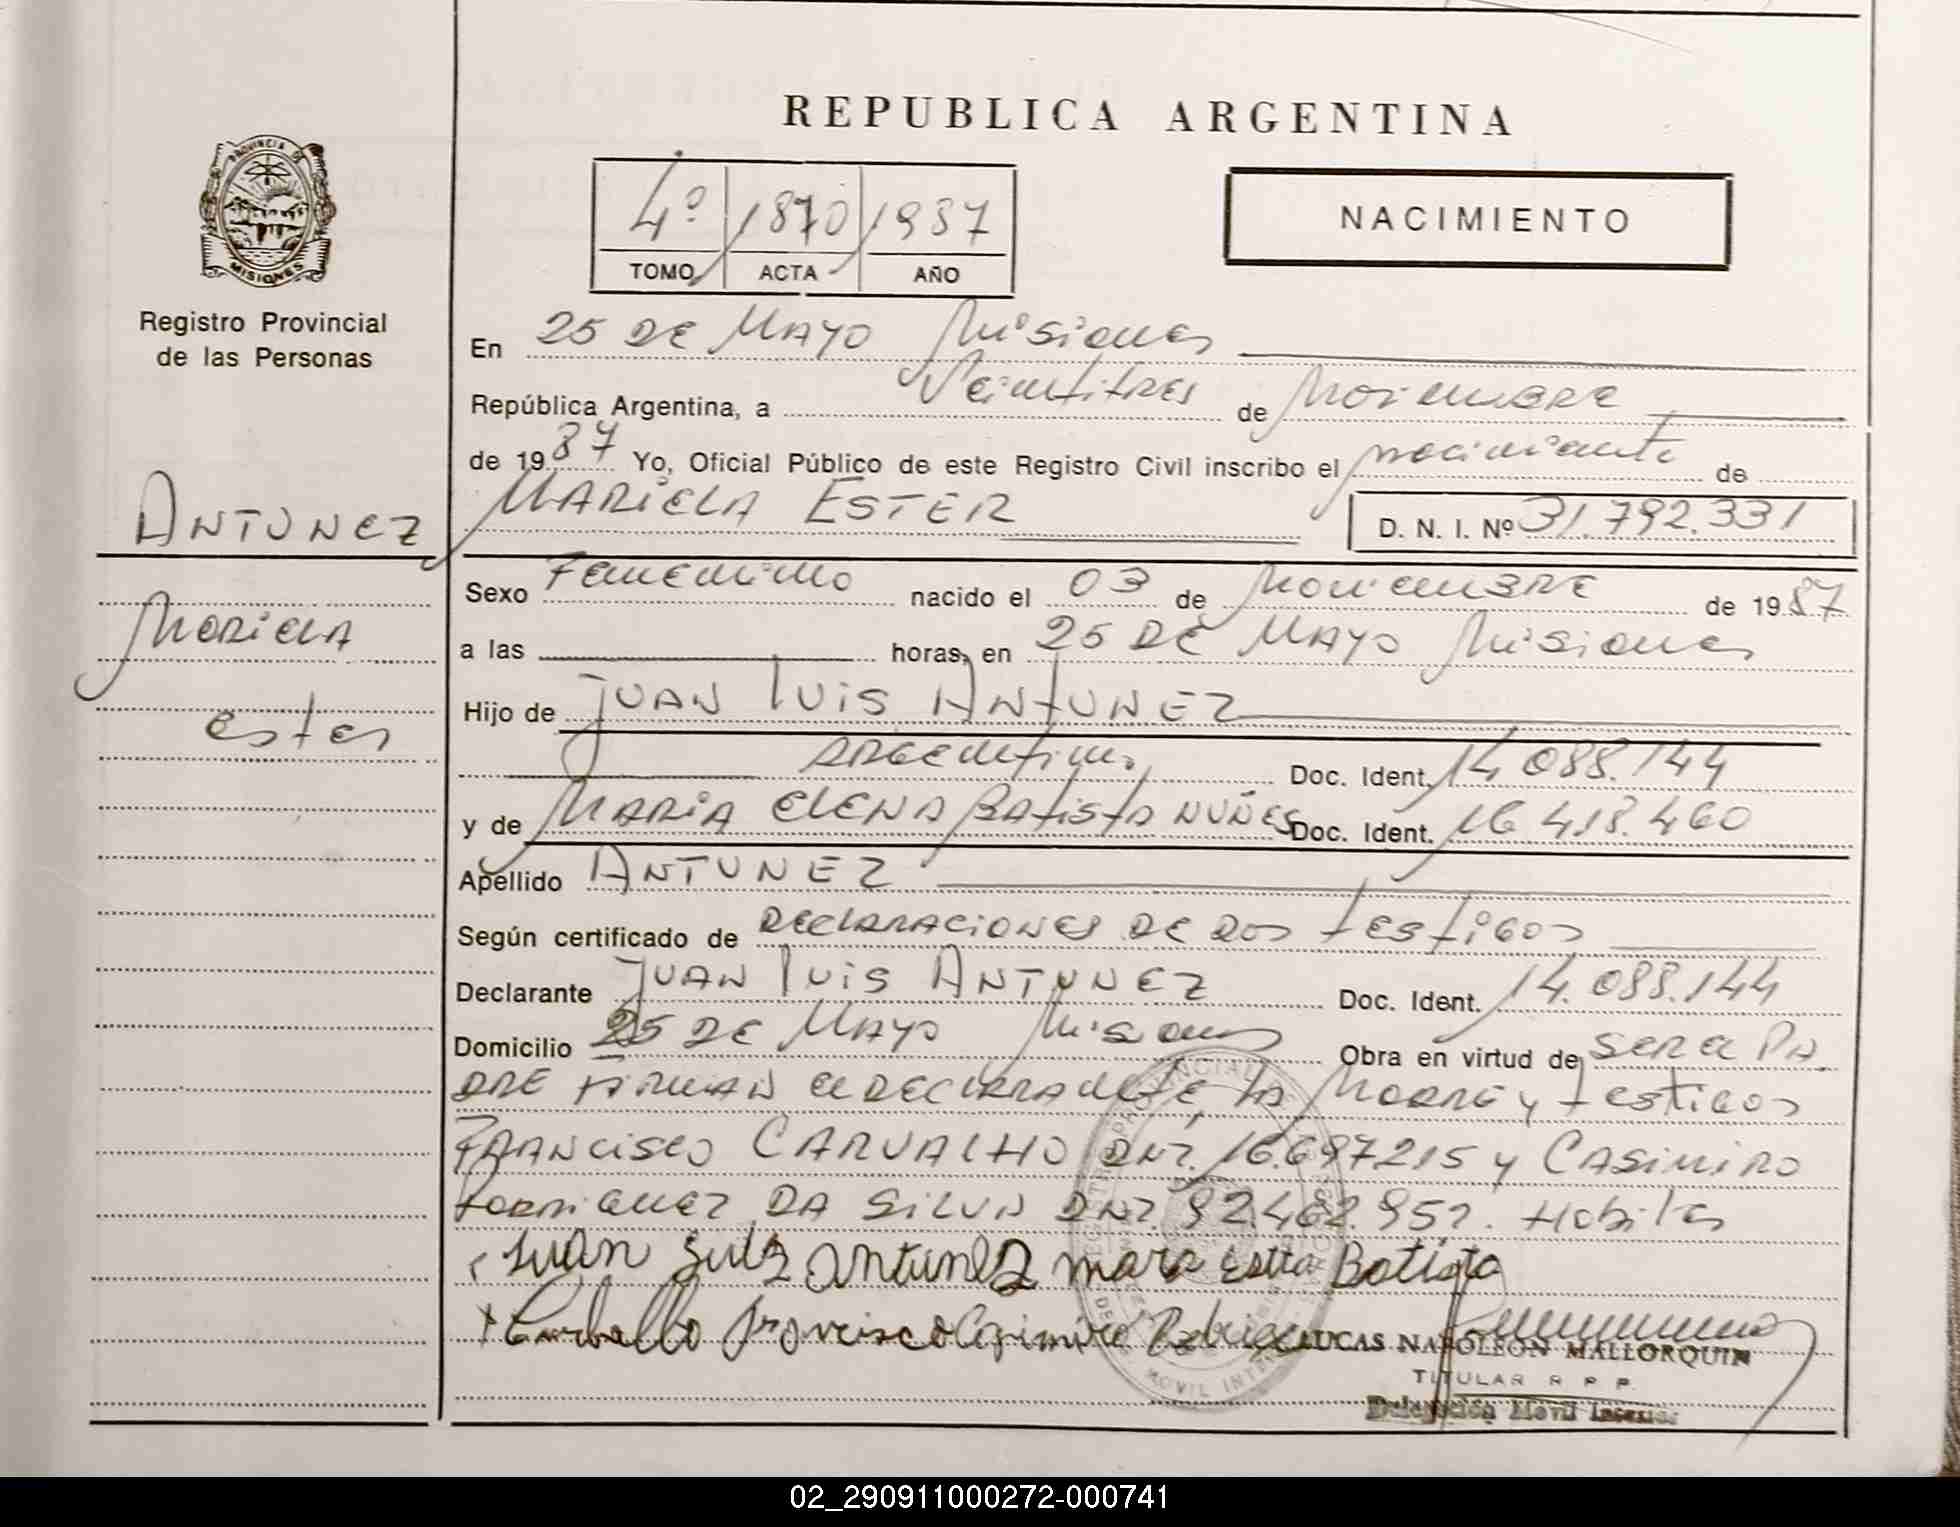 REPUBLICA ARGENTINA
PROVINCIA DE
MISIONES
Registro Provincial
de las Personas
4º 1870 1987
TOMO ACTA AÑO
NACIMIENTO
En 25 DE MAYO Misiones
República Argentina, a Veintitres de Noviembre
de 1987 Yo, Oficial Público de este Registro Civil inscribo el nacimiento de
ANTUNEZ
MARIELA ESTER D. N. I. Nº 31.792.331
Sexo Femenino nacido el 03 de Noviembre de 1987
Mariela
a las horas, en 25 DE MAYO Misiones
ester
Hijo de JUAN LUIS ANTUNEZ
ARGENTINO, Doc. Ident. 14.088.144
y de MARIA ELENA Batista NUÑES Doc. Ident. 16.418.460
Apellido ANTUNEZ
Según certificado de DECLARACIONES DE DOS testigos
Declarante JUAN LUIS ANTUNEZ Doc. Ident. 14.088.144
Domicilio 25 DE MAYO Misiones Obra en virtud de SER EL PA
DRE FIRMAN EL DECLARANTE, LA MADRE y testigos
FRANCISCO CARVALHO DNI. 16.697215 y CASIMIRO
RODRIGUEZ DA SILVA DNI. 92.462.957. Habiles
Juan Luis Antunez Batista
Carballo Francisco
LUCAS NAPOLEON MALLORQUIN
TITULAR R. P. P.
Delegación Movil Interior
02_290911000272-000741